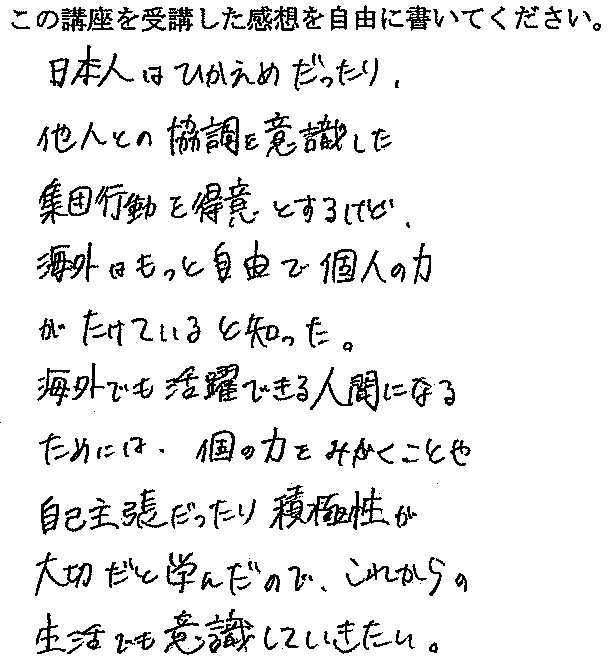 この講座を受講した感想を自由に書いてください。
日本人はひかえめだったり、
他人との協調を意識した
集団行動を得意とするけど、
海外はもっと自由で個人の力
がたけていると知った。
海外でも活躍できる人間になる
ためには、個の力をみがくことや
自己主張だったり積極性が
大切だと学んだので、これからの
生活でも意識していきたい。